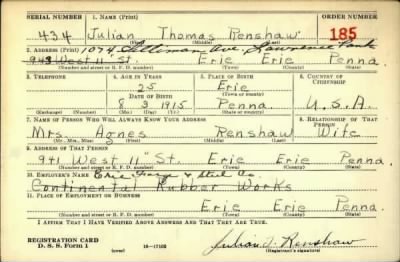 SERIAL NUMBER 1. NAME (Print) ORDER NUMBER
434 Julian Thomas Renshaw 185
(First) (Middle) (Last)
2. ADDRESS (Print) 1074 Silliman Ave. Lawrence Park
943 West 11" St. Erie Erie Penna.
(Number and street or R. F. D. number) (Town) (County) (State)
3. TELEPHONE 4. AGE IN YEARS 5. PLACE OF BIRTH 6. COUNTRY OF CITIZENSHIP
25 Erie
DATE OF BIRTH (Town or county)
8 3 1915 Penna. U.S.A.
(Exchange) (Number) (Mo.) (Day) (Yr.) (State or country)
7. NAME OF PERSON WHO WILL ALWAYS KNOW YOUR ADDRESS 8. RELATIONSHIP OF THAT PERSON
Mrs. Agnes Renshaw Wife
(Mr., Mrs., Miss) (First) (Middle) (Last)
9. ADDRESS OF THAT PERSON
941 West 11" St. Erie Erie Penna.
(Number and street or R. F. D. number) (Town) (County) (State)
10. EMPLOYER'S NAME Erie Forge & Steel Co.
Continental Rubber Works
11. PLACE OF EMPLOYMENT OR BUSINESS
Erie Erie Penna.
(Number and street or R. F. D. number) (Town) (County) (State)
I AFFIRM THAT I HAVE VERIFIED ABOVE ANSWERS AND THAT THEY ARE TRUE.
REGISTRATION CARD
D. S. S. Form 1 (over) 16—17105 Julian T. Renshaw
(Registrant's signature)